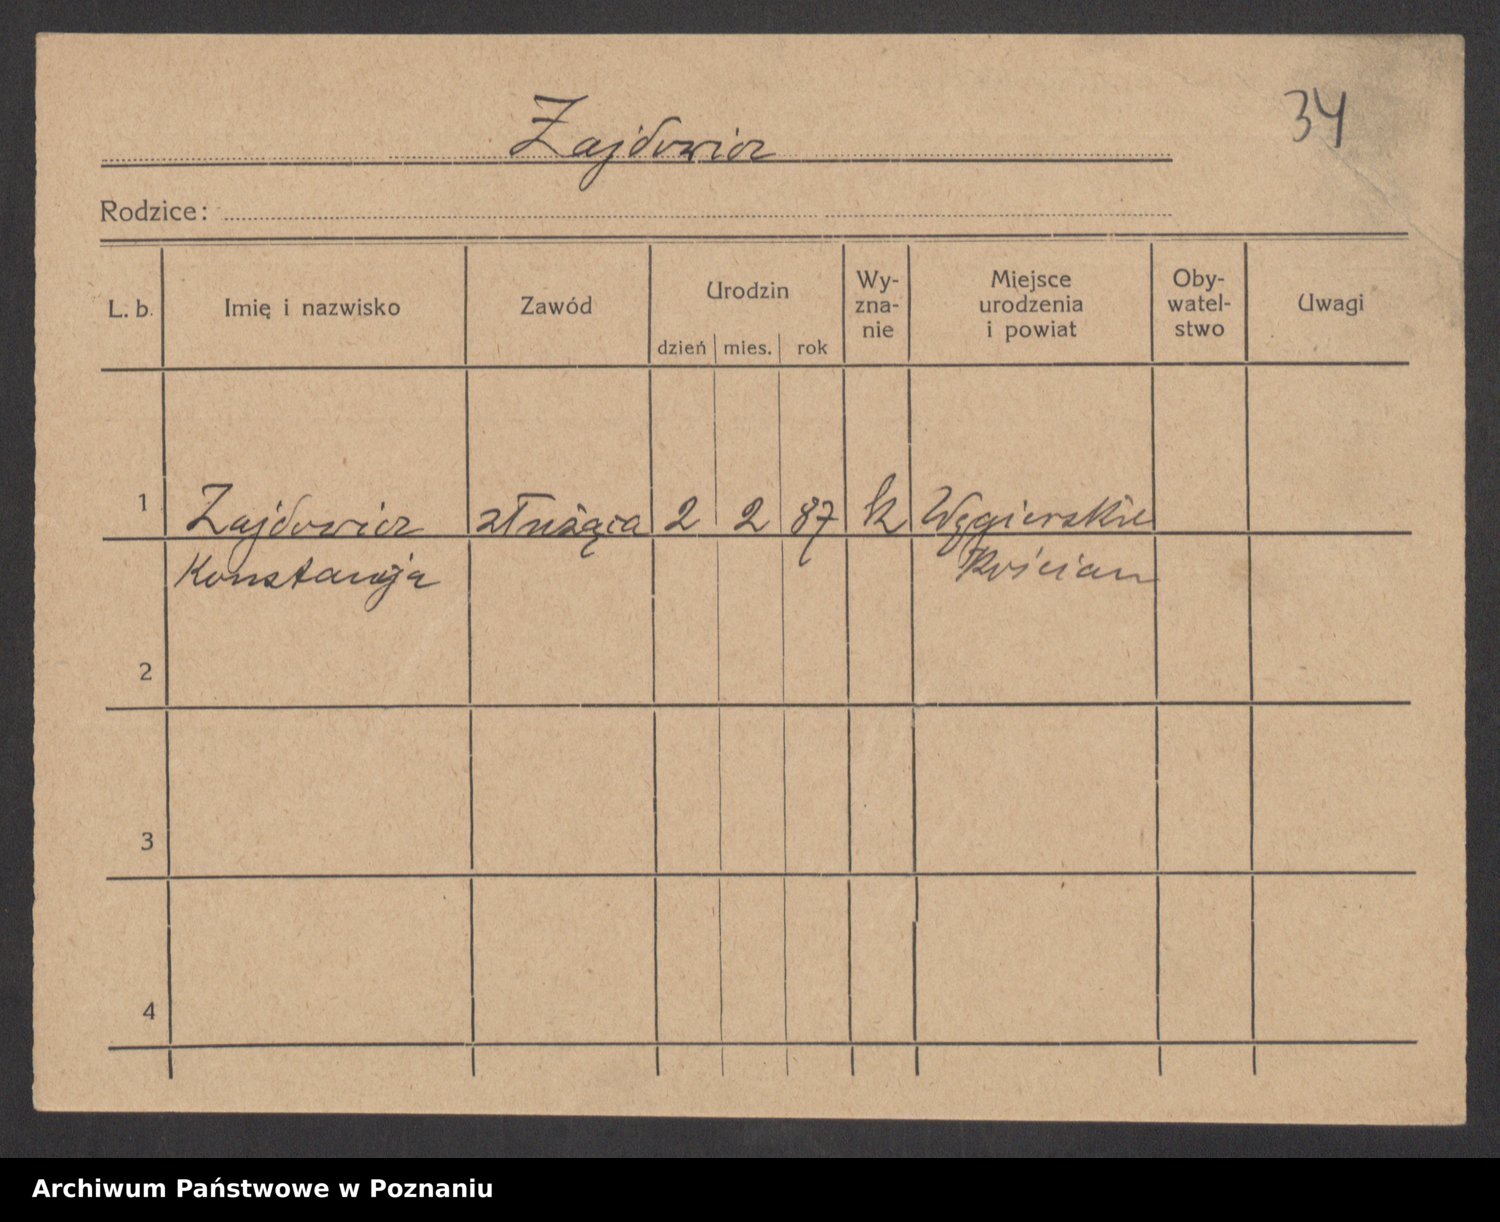 34
Zajdowicz
Rodzice:
L. b. Imię i nazwisko Zawód Urodzin dzień mies. rok Wy-zna-nie Miejsce urodzenia i powiat Oby-watel-stwo Uwagi
1 Zajdowicz służąca 2 2 87 k Węgierskie
Konstancja Kościan
2
3
4
Archiwum Państwowe w Poznaniu